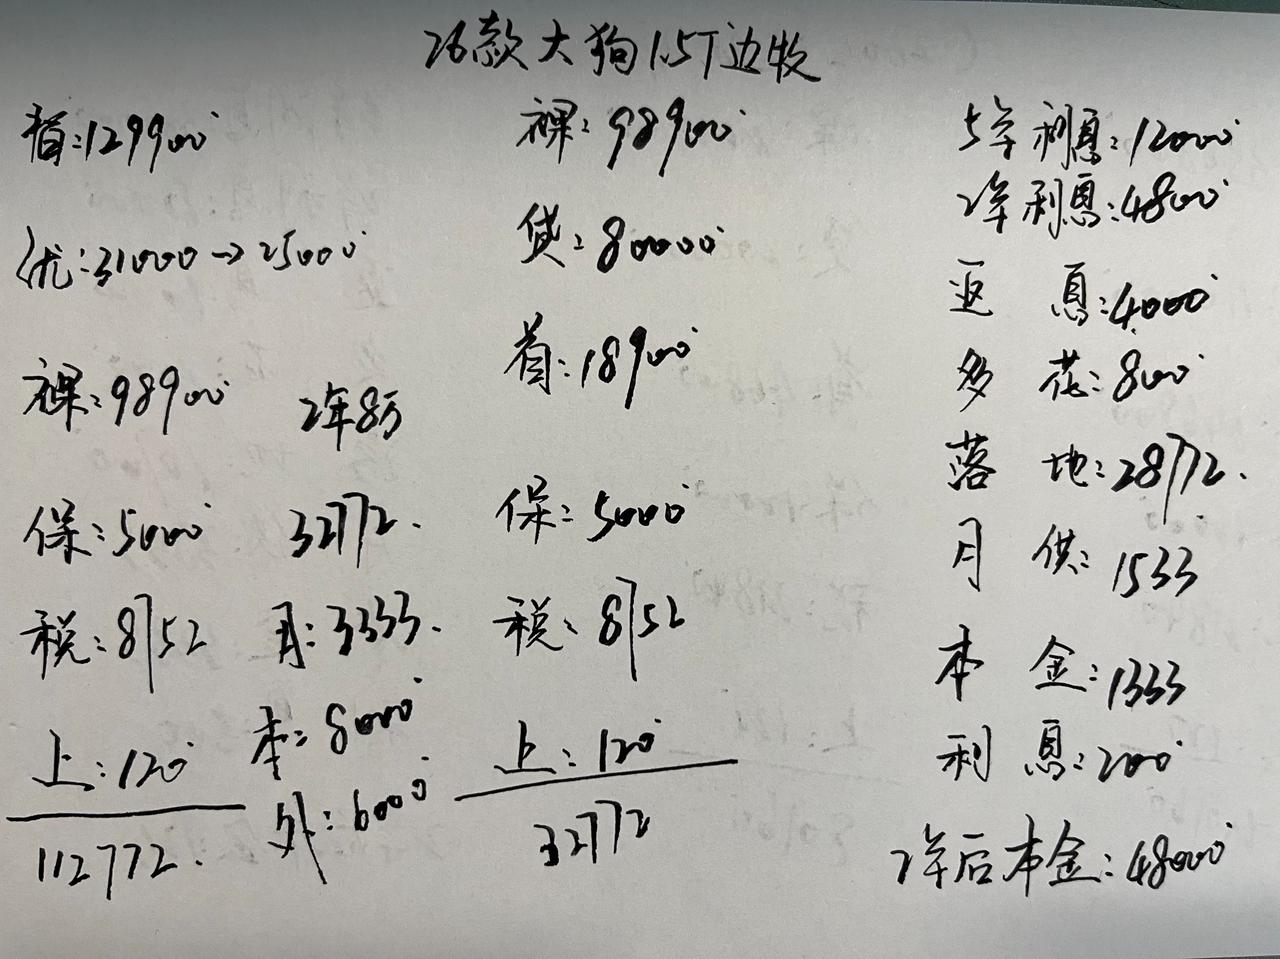 26款大狗1.5T边牧
指:129900
优:31000→25000
裸:98900
保:5000
税:8752
上:120
112772.
2年8万
32772.
月:3333.
本:80000
外:6000
裸:98900
贷:80000
首:18900
保:5000
税:8752
上:120
32772
5年利息:12000
2年利息:4800
返 息:4000
多 花:800
落 地:28772.
月 供:1533
本 金:1333
利 息:200
2年后本金:48000